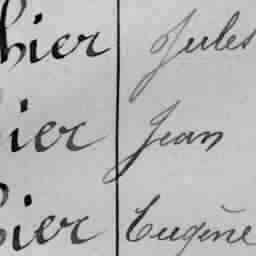 hier Jules
ier Jean
ier Eugène